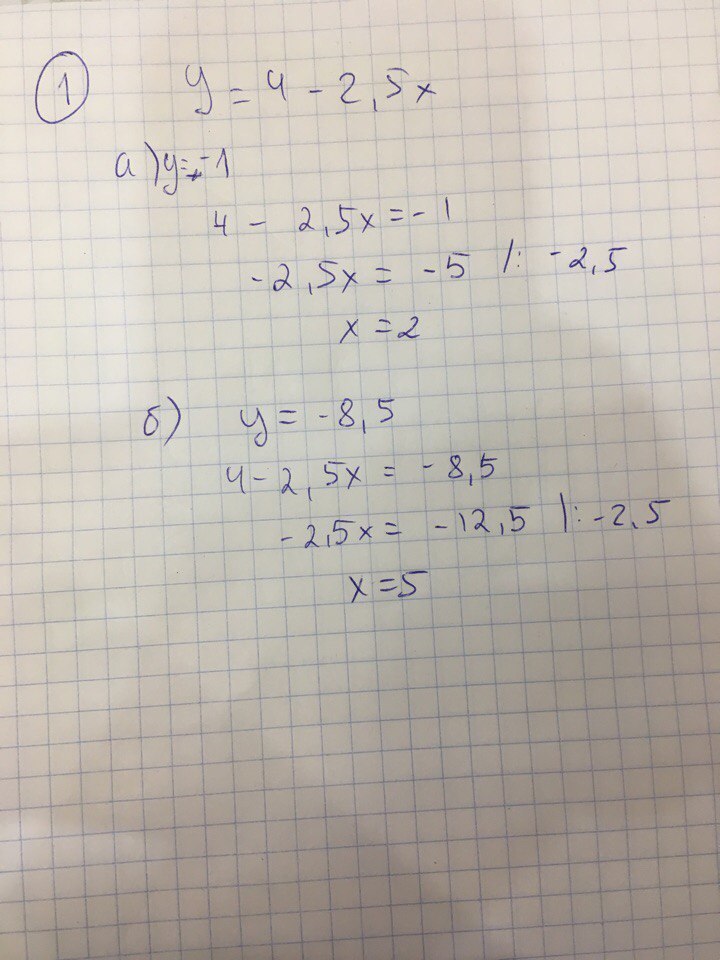 1 y = 4 - 2,5x
а) y = -1
4 - 2,5x = -1
-2,5x = -5 |: -2,5
x = 2
б) y = -8,5
4 - 2,5x = -8,5
-2,5x = -12,5 |: -2,5
x = 5